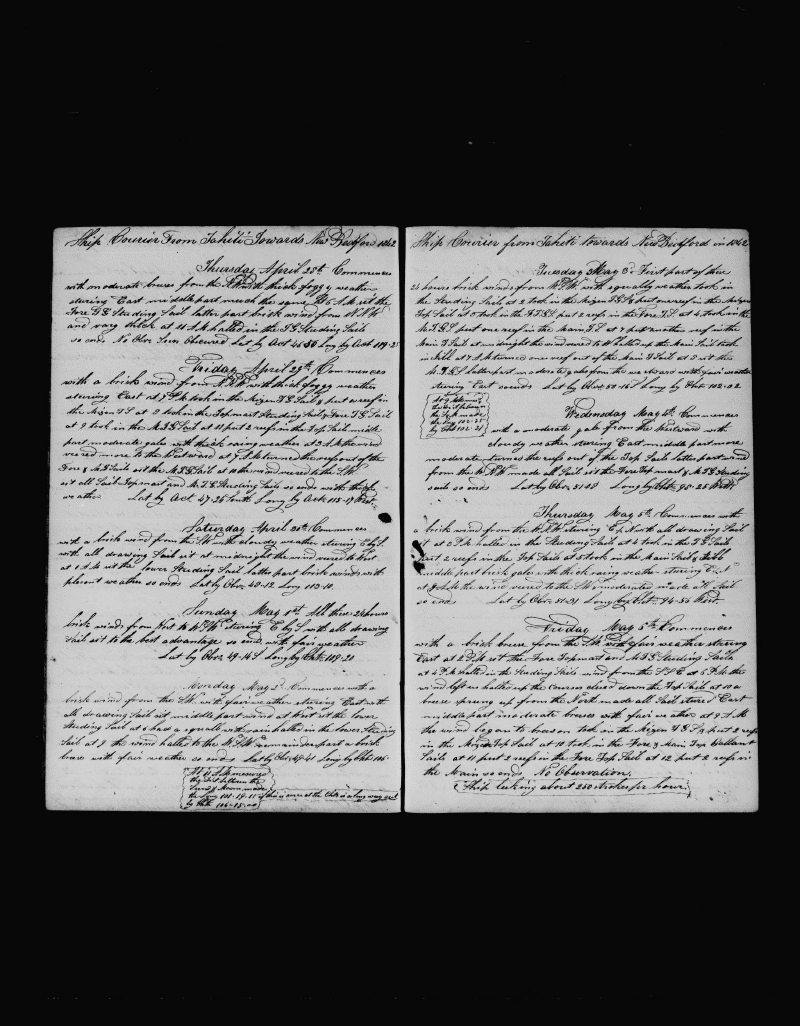 Ship Courier From Tahiti Towards New Bedford 1842
Thursday April 28th Commences
with moderate breese from the thick foggy weather
stering East middle part much the same At 5 A.M set the
Fore TG Studing Sail latter part brisk wind from N.N.W
and vary thick at 11 A.M halled in the TG Studing Sails
so ends No Obv. Lat by Act Long by Act
Friday April 29th Commences
with a brisk wind from with thick foggy weather
stering East at 7 P.M. took in the Mizen TG Sail & put a reef in
the Mizen TS at 8 took in the Topmast Studing Sail & Fore TG Sail
at 9 took in the M.TG Sail at 11 put 2 reefs in the Top Sail midle
part moderate gale with thick rainy weather at 3 A.M the wind
veered more to the Eastward at 7 A.M turned the reefs out of the
Fore & M.TS Sails set the M.TG Sail at 10 the wind veered to the S.W.
set all Sail Topmast and M.T.G Studing Sails so ends with thick
weather. Lat by Act. 47-26 South Long by Act 113-17 West
Saturday April 30th Commences
with a brisk wind from the S.W with cloudy weather stering E by S.
with all drawing Sail set at midnight the wind veered to West
at 1 A.M set the lower Studing Sail latter part brisk winds with
plesent weather so ends Lat by Obv. 48-12 Long 113-10.
Sunday May 1st All these 24 hours
brisk winds from West to W.S.W. stering E by S with all drawing
Sail set to the best advantage so ends with fair weather
Lat by Obv. 49-14 S Long by Chr. 109-20
Monday May 2d Commences with a
brisk wind from the S.W. with fair weather stering East with
all drawing Sail set middle part wind at West set the lower
Studing Sail at 6 had a squall with rain halled in the lower Studing
Sail at 8 the wind halled to the W.S.W. remainder part a brisk
breese with fair weather so ends Lat by Obv. 49-41 Long by Chr. 106-
At 11 A.M mesured
the Dist between the
Suns & Moon made
the Long this is sure as the Chr. is a long way out
by Chr. 106-15-00
Ship Courier from Tahiti towards New Bedford in 1842
Tuesday May 3d First part of these
24 hours brisk winds from W.N.W. with squally weather took in
the Studing Sail, at 2 took in the Mizen TG Sl, put one reef in the Mizen
Top Sail at 3 took in the F.T.G.S. put 2 reefs in the Fore T.S. at 4 took in the
M.T.G.S put one reef in the Main TS at 7 put another reef in the
Main T Sail at midnight the wind veered to W halled up the Main Sail took
in Jibb at 7 A.M turned one reef out of the Main T Sail at 8 set the
M.T.G.S latter part moderate gales from the westward with fair weather
stering East so ends Lat by Obv 50-16 S Long by Chr. 102-02
At 9 A.M mesured
the Dist between
the S & M made
the Long 102-35
by Chr. 102-21
Wednesday May 4th Commences
with a moderate gale from the Westward with
cloudy weather stering East middle part more
moderate turned the reefs out of the Top Sails latter part wind
from the W.N.W made all Sail set the Fore Top mast & M.T.G Studing
sails so ends Lat by Obv. 51 03 Long by Chr. 98-25 West
Thursday May 5th Commences with
a brisk wind from the W.N.W. stering E by North all drawing Sail
set at 2 P.M. halled in the Studing Sails at 4 took in the TG Sail
put 2 reefs in the Top Sails at 5 took in the Main Sail & Jibb
middle part brisk gale with thick rainy weather stering East
at 8 A.M the wind veered to the S.W. moderated made all Sail
so ends Lat by Obv. 51-31 Long by Chr. 94-55 West.
Friday May 6th Commences
with a brisk breese from the S.W. with fair weather stering
East at 2 P.M set the Fore Topmast and M.T.G Studing Sails
at 4 P.M halled in the Studing Sails wind from the S.S.E at 6 P.M the
wind left us halled up the courses clued down the Top Sails at 10 a
breese sprung up from the North made all Sail stered East
middle part moderate breeses with fair weather at 9 A.M
the wind began to breason took in the Mizen T.G.S, put 2 reefs
in the Mizen Top Sail at 10 took in the Fore & Main Top Gallant
Sails at 11 put 2 reefs in the Fore Top Sail at 12 put 2 reefs in
the Main so ends No Observation.
Ship leaking about 250 strokes per hour